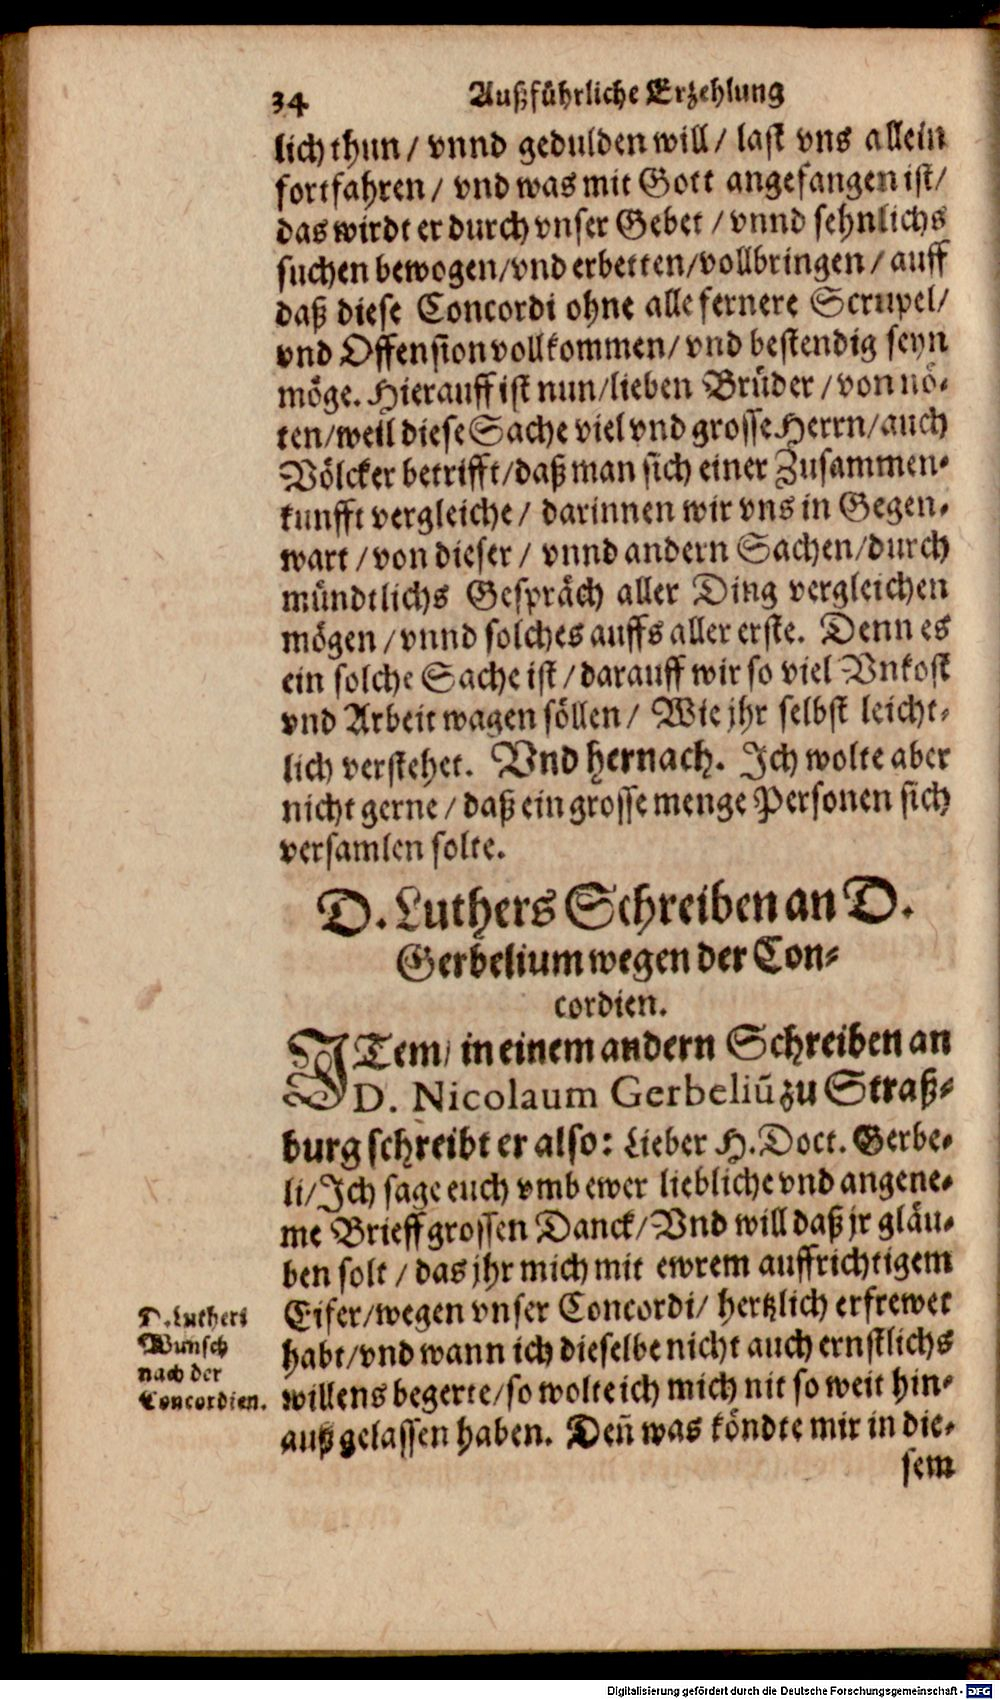 34 Außführliche Erzehlung
lich thun / vnnd gedulden will / last vns allein
fortfahren / vnd was mit Gott angefangen ist /
das wirdt er durch vnser Gebet / vnnd sehnlichs
suchen bewogen / vnd erbetten / vollbringen / auff
daß diese Concordi ohne alle fernere Scrupel /
vnd Offension vollkommen / vnd bestendig seyn
möge. Hierauff ist nun / lieben Brüder / von nö-
ten / weil diese Sache viel vnd grosse Herrn / auch
Völcker betrifft / daß man sich einer Zusammen-
kunfft vergleiche / darinnen wir vns in Gegen-
wart / von dieser / vnnd andern Sachen / durch
mündtlichs Gespräch aller Ding vergleichen
mögen / vnnd solches auffs aller erste. Denn es
ein solche Sache ist / darauff wir so viel Vnkost
vnd Arbeit wagen söllen / Wie jhr selbst leicht-
lich verstehet. Vnd hernach. Ich wolte aber
nicht gerne / daß ein grosse menge Personen sich
versamlen solte.
D. Luthers Schreiben an D.
Gerbelium wegen der Con-
cordien.
ITem / in einem andern Schreiben an
D. Nicolaum Gerbeliũ zu Straß-
burg schreibt er also: Lieber H. Doct. Gerbe-
li / Ich sage euch vmb ewer liebliche vnd angene-
me Brieff grossen Danck / Vnd will daß jr gläu-
ben solt / das jhr mich mit ewrem auffrichtigem
Eifer / wegen vnser Concordi / hertzlich erfrewet
habt / vnd wann ich dieselbe nicht auch ernstlichs
willens begerte / so wolte ich mich nit so weit hin-
auß gelassen haben. Deñ was köndte mir in die-
sem
D. Luthers
Wunsch
nach der
Concordien.
Digitalisierung gefördert durch die Deutsche Forschungsgemeinschaft - DFG